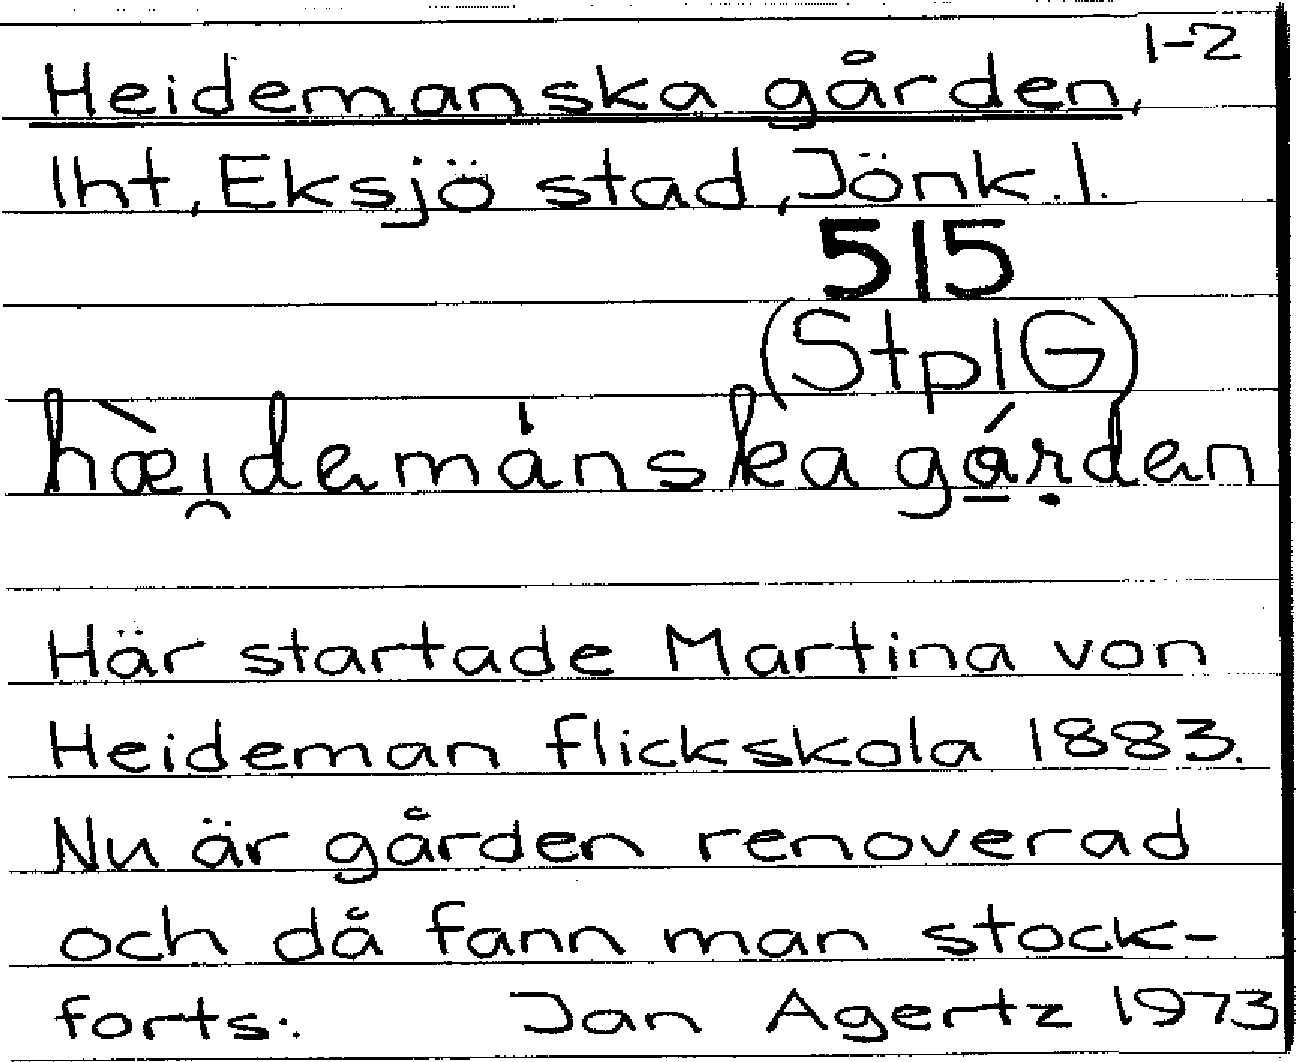 1-2
Heidemanska gården,
lht, Eksjö stad, Jönk. l.
515
(StplG)
hæ̀i̯demánska gá̱ṛden
Här startade Martina von
Heideman flickskola 1883.
Nu är gården renoverad
och då fann man stock-
forts.. Jan Agertz 1973